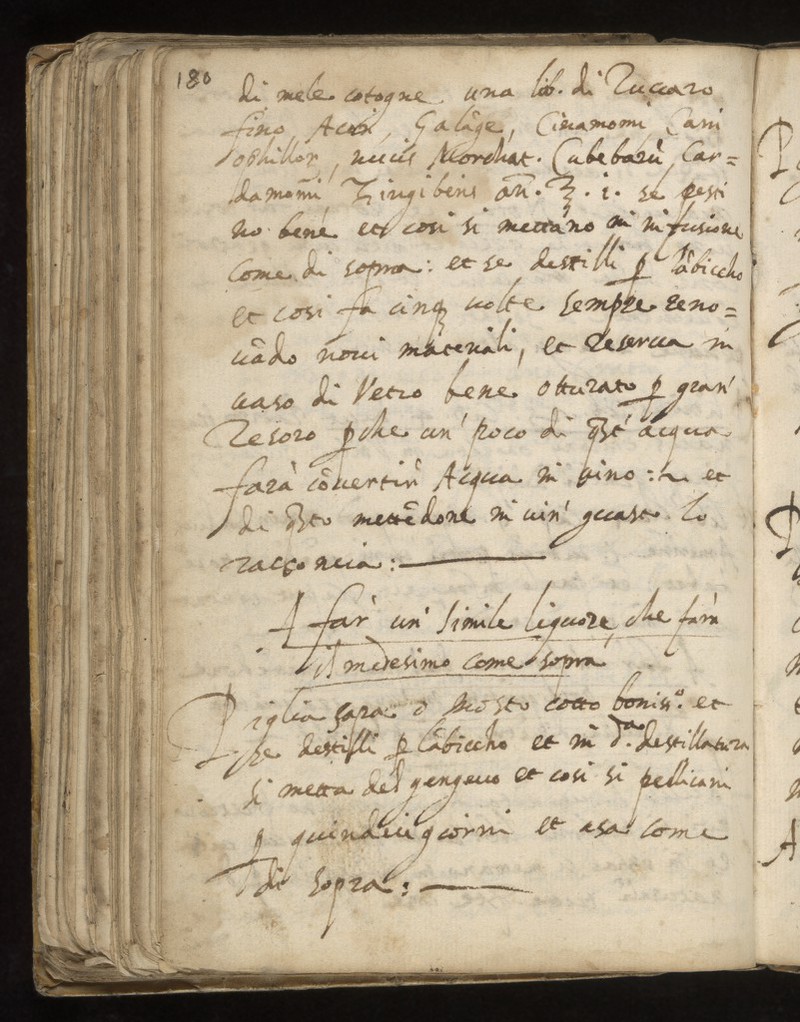 180
di mele cotogne una lib. di Zuccaro
fino, Acori, Galãge, Cinamomi, Cari
ophillor, nucis Moschat. Cubebarũ, Car=
damomi Zingiberis añ. ℥. i. se pesti
no bene et cosi si mettãno in infusione
come di sopra: et se destilli ꝑ lãbiccho
et cosi fa cinqꝫ uolte sempre reno=
uãdo noui materiali, et reserua in
uaso di Vetro bene otturato ꝑ gran'
Tesoro ꝑche un' poco di q̃st' acqua
farà cõuertir' Acqua in uino: et
di q̃sto mettẽdone in uin' guasto lo
racconcia:
A far' un' simile liquore, che farà
il medesimo come sopra
Piglia sapa o Mosto cotto boniss.º et
se destilli ꝑ lãbiccho et in d.ª destillatura
si metta del gengeuo et cosi si pellicani
ꝑ quindici giorni et usa come
di sopra: